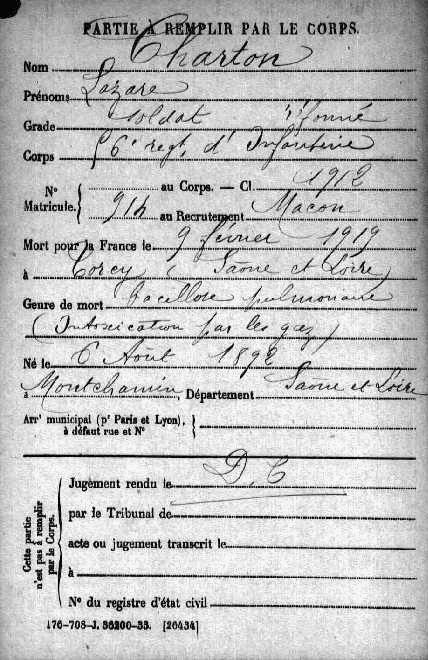 PARTIE À REMPLIR PAR LE CORPS.
Nom Charton
Prénoms Lazare
Grade soldat réformé
Corps 6e regt d'Infanterie
N° Matricule. { au Corps. — Cl. 1912
914 au Recrutement Macon
Mort pour la France le 9 février 1919
à Torcy (Saône et Loire)
Genre de mort bacillose pulmonaire
(Intoxication par les gaz)
Né le 6 Août 1892
à Montchanin, Département Saone et Loire
Arrt municipal (pr Paris et Lyon), à défaut rue et N° }
D. C
Cette partie n'est pas à remplir par le Corps.
Jugement rendu le
par le Tribunal de
acte ou jugement transcrit le
à
N° du registre d'état civil
176-708-J. 36200-33. [26434]